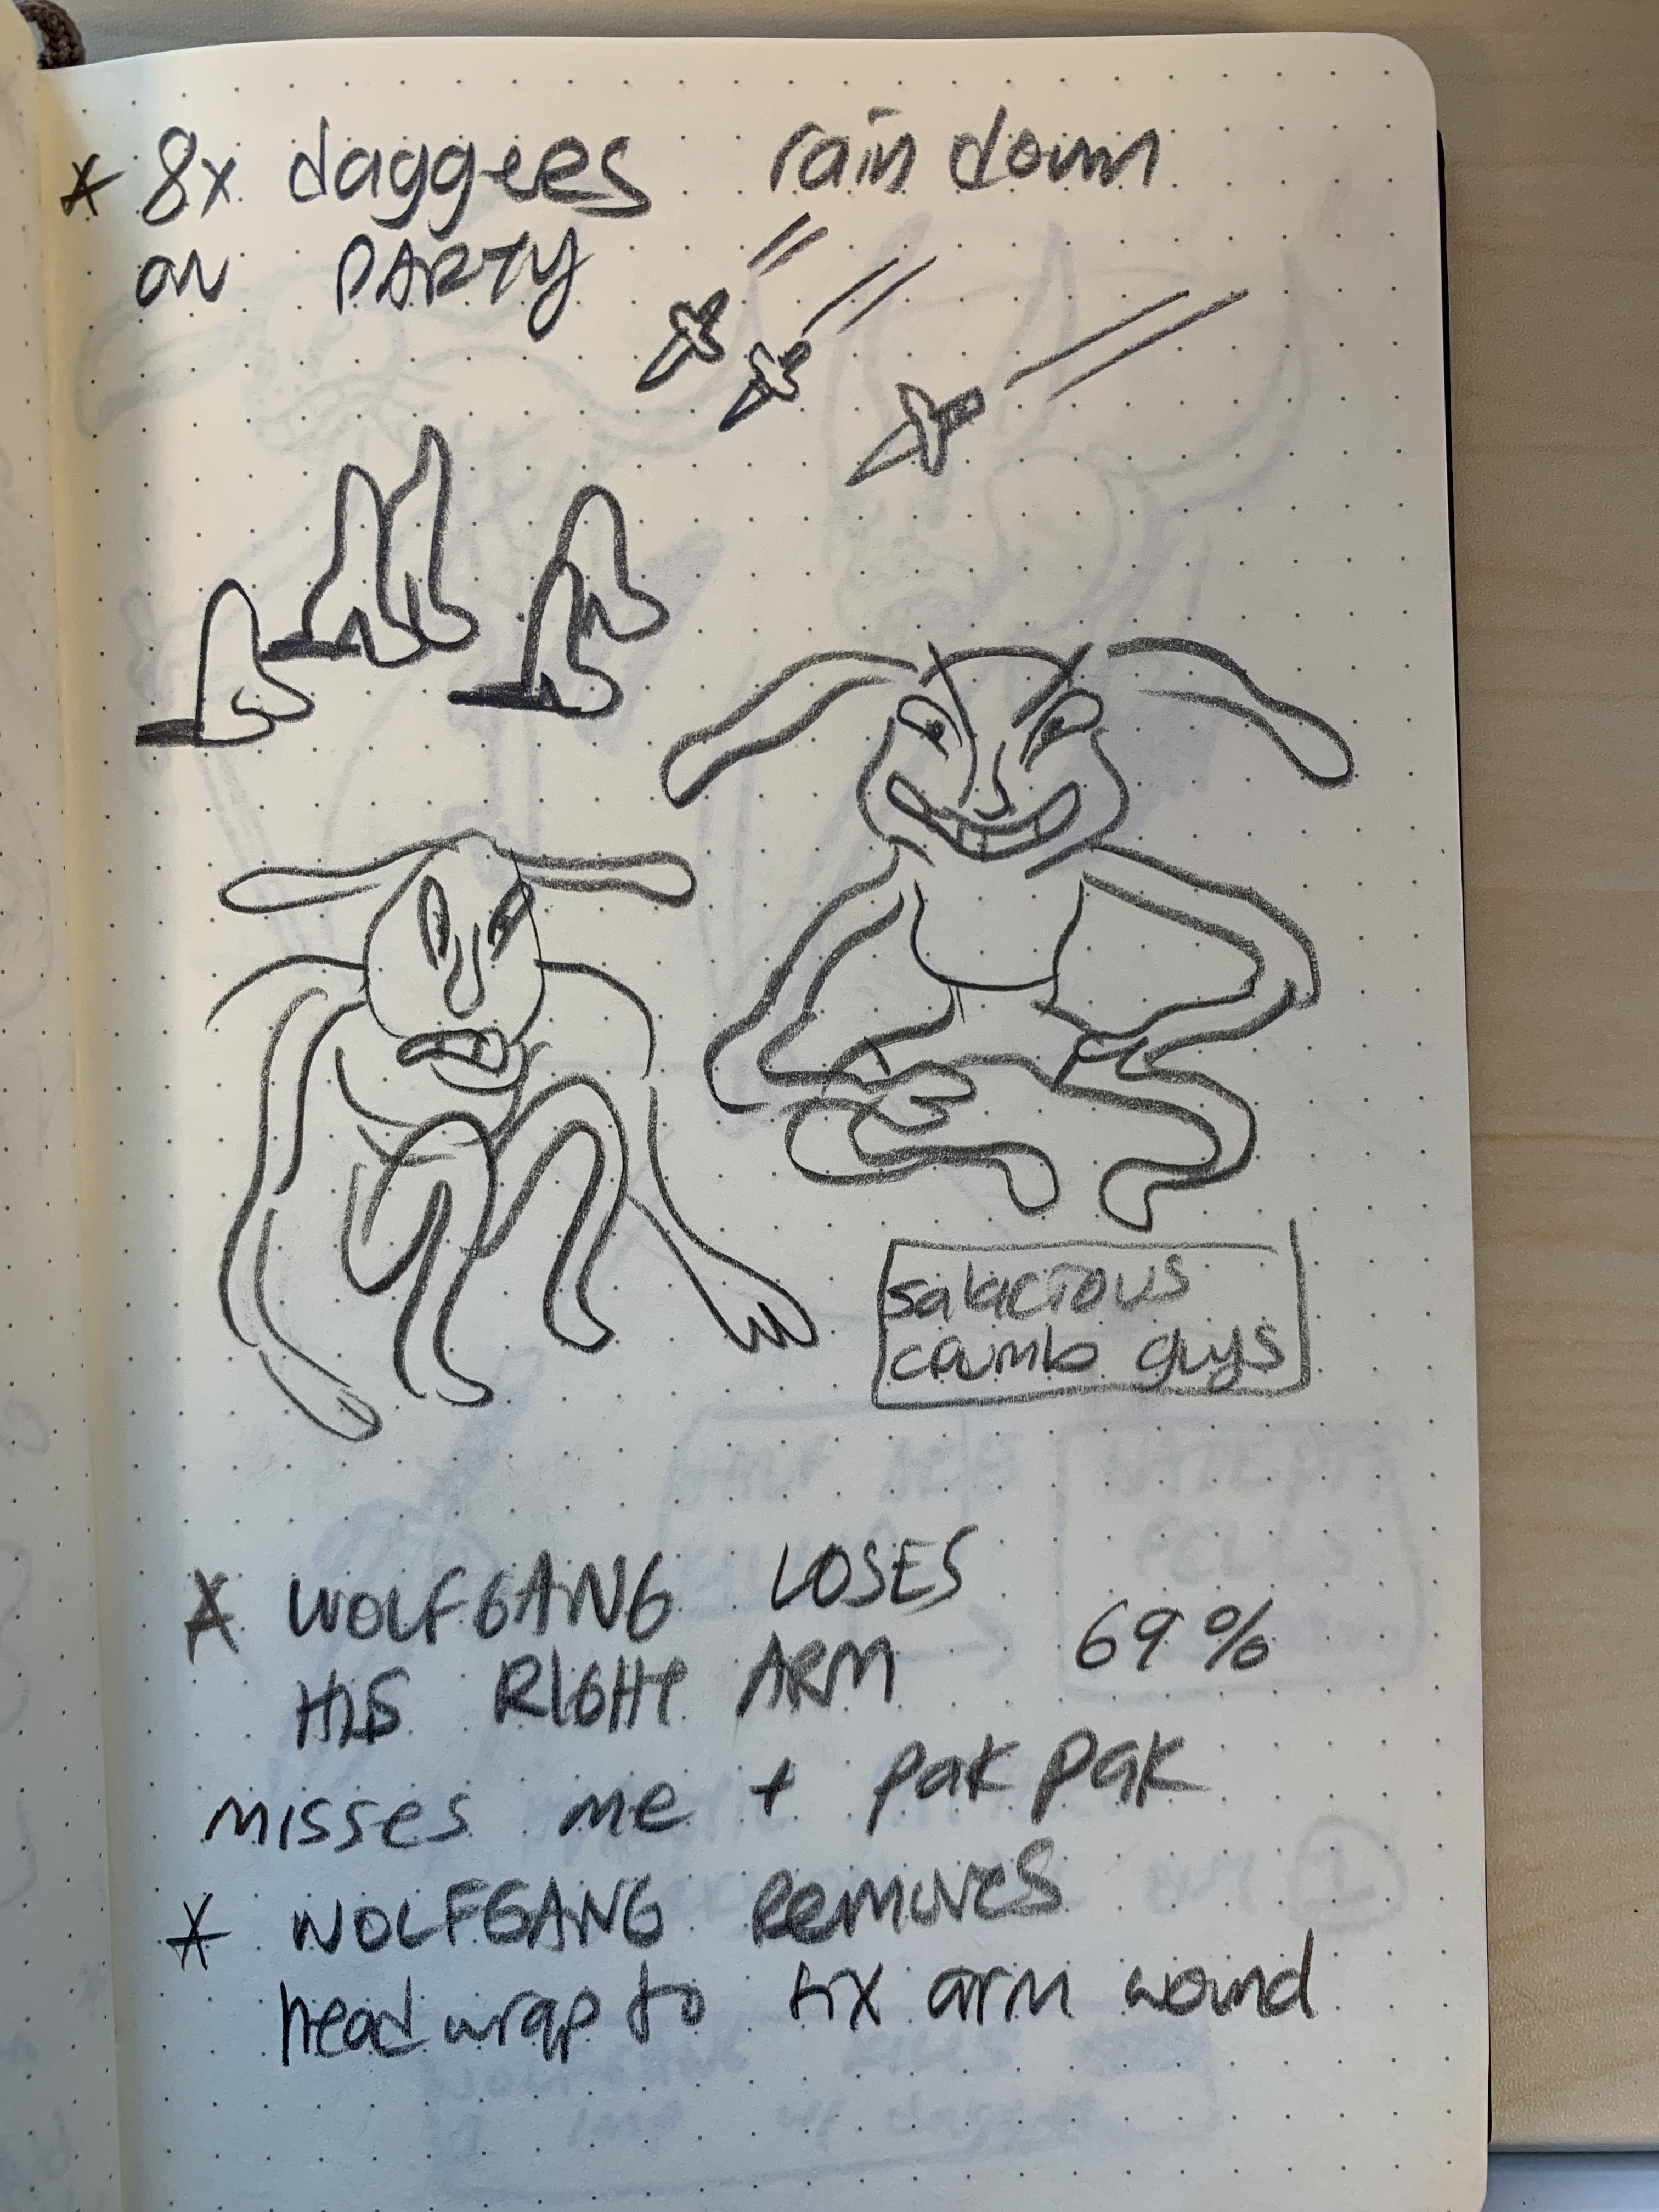 * 8x daggers rain down
on PARTY
salacious
crumb guys
* WOLFGANG LOSES
HIS RIGHT ARM 69%
misses me + pak pak
* WOLFGANG REMOVES
head wrap to fix arm wound